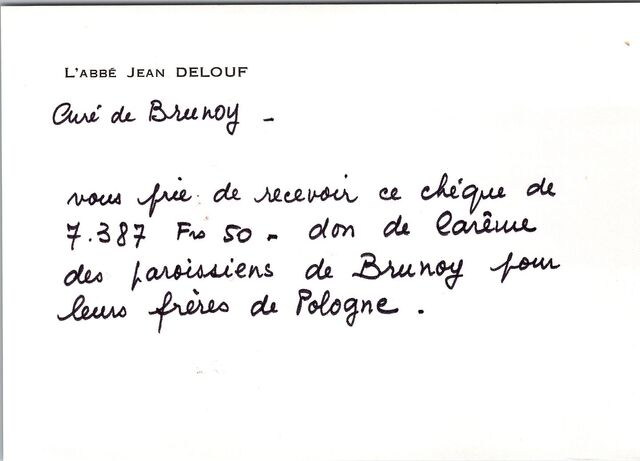 L'ABBÉ JEAN DELOUF
Curé de Brunoy -
vous prie de recevoir ce chéque de
7.387 Frs 50 - don de Carême
des paroissiens de Brunoy pour
leurs frères de Pologne.